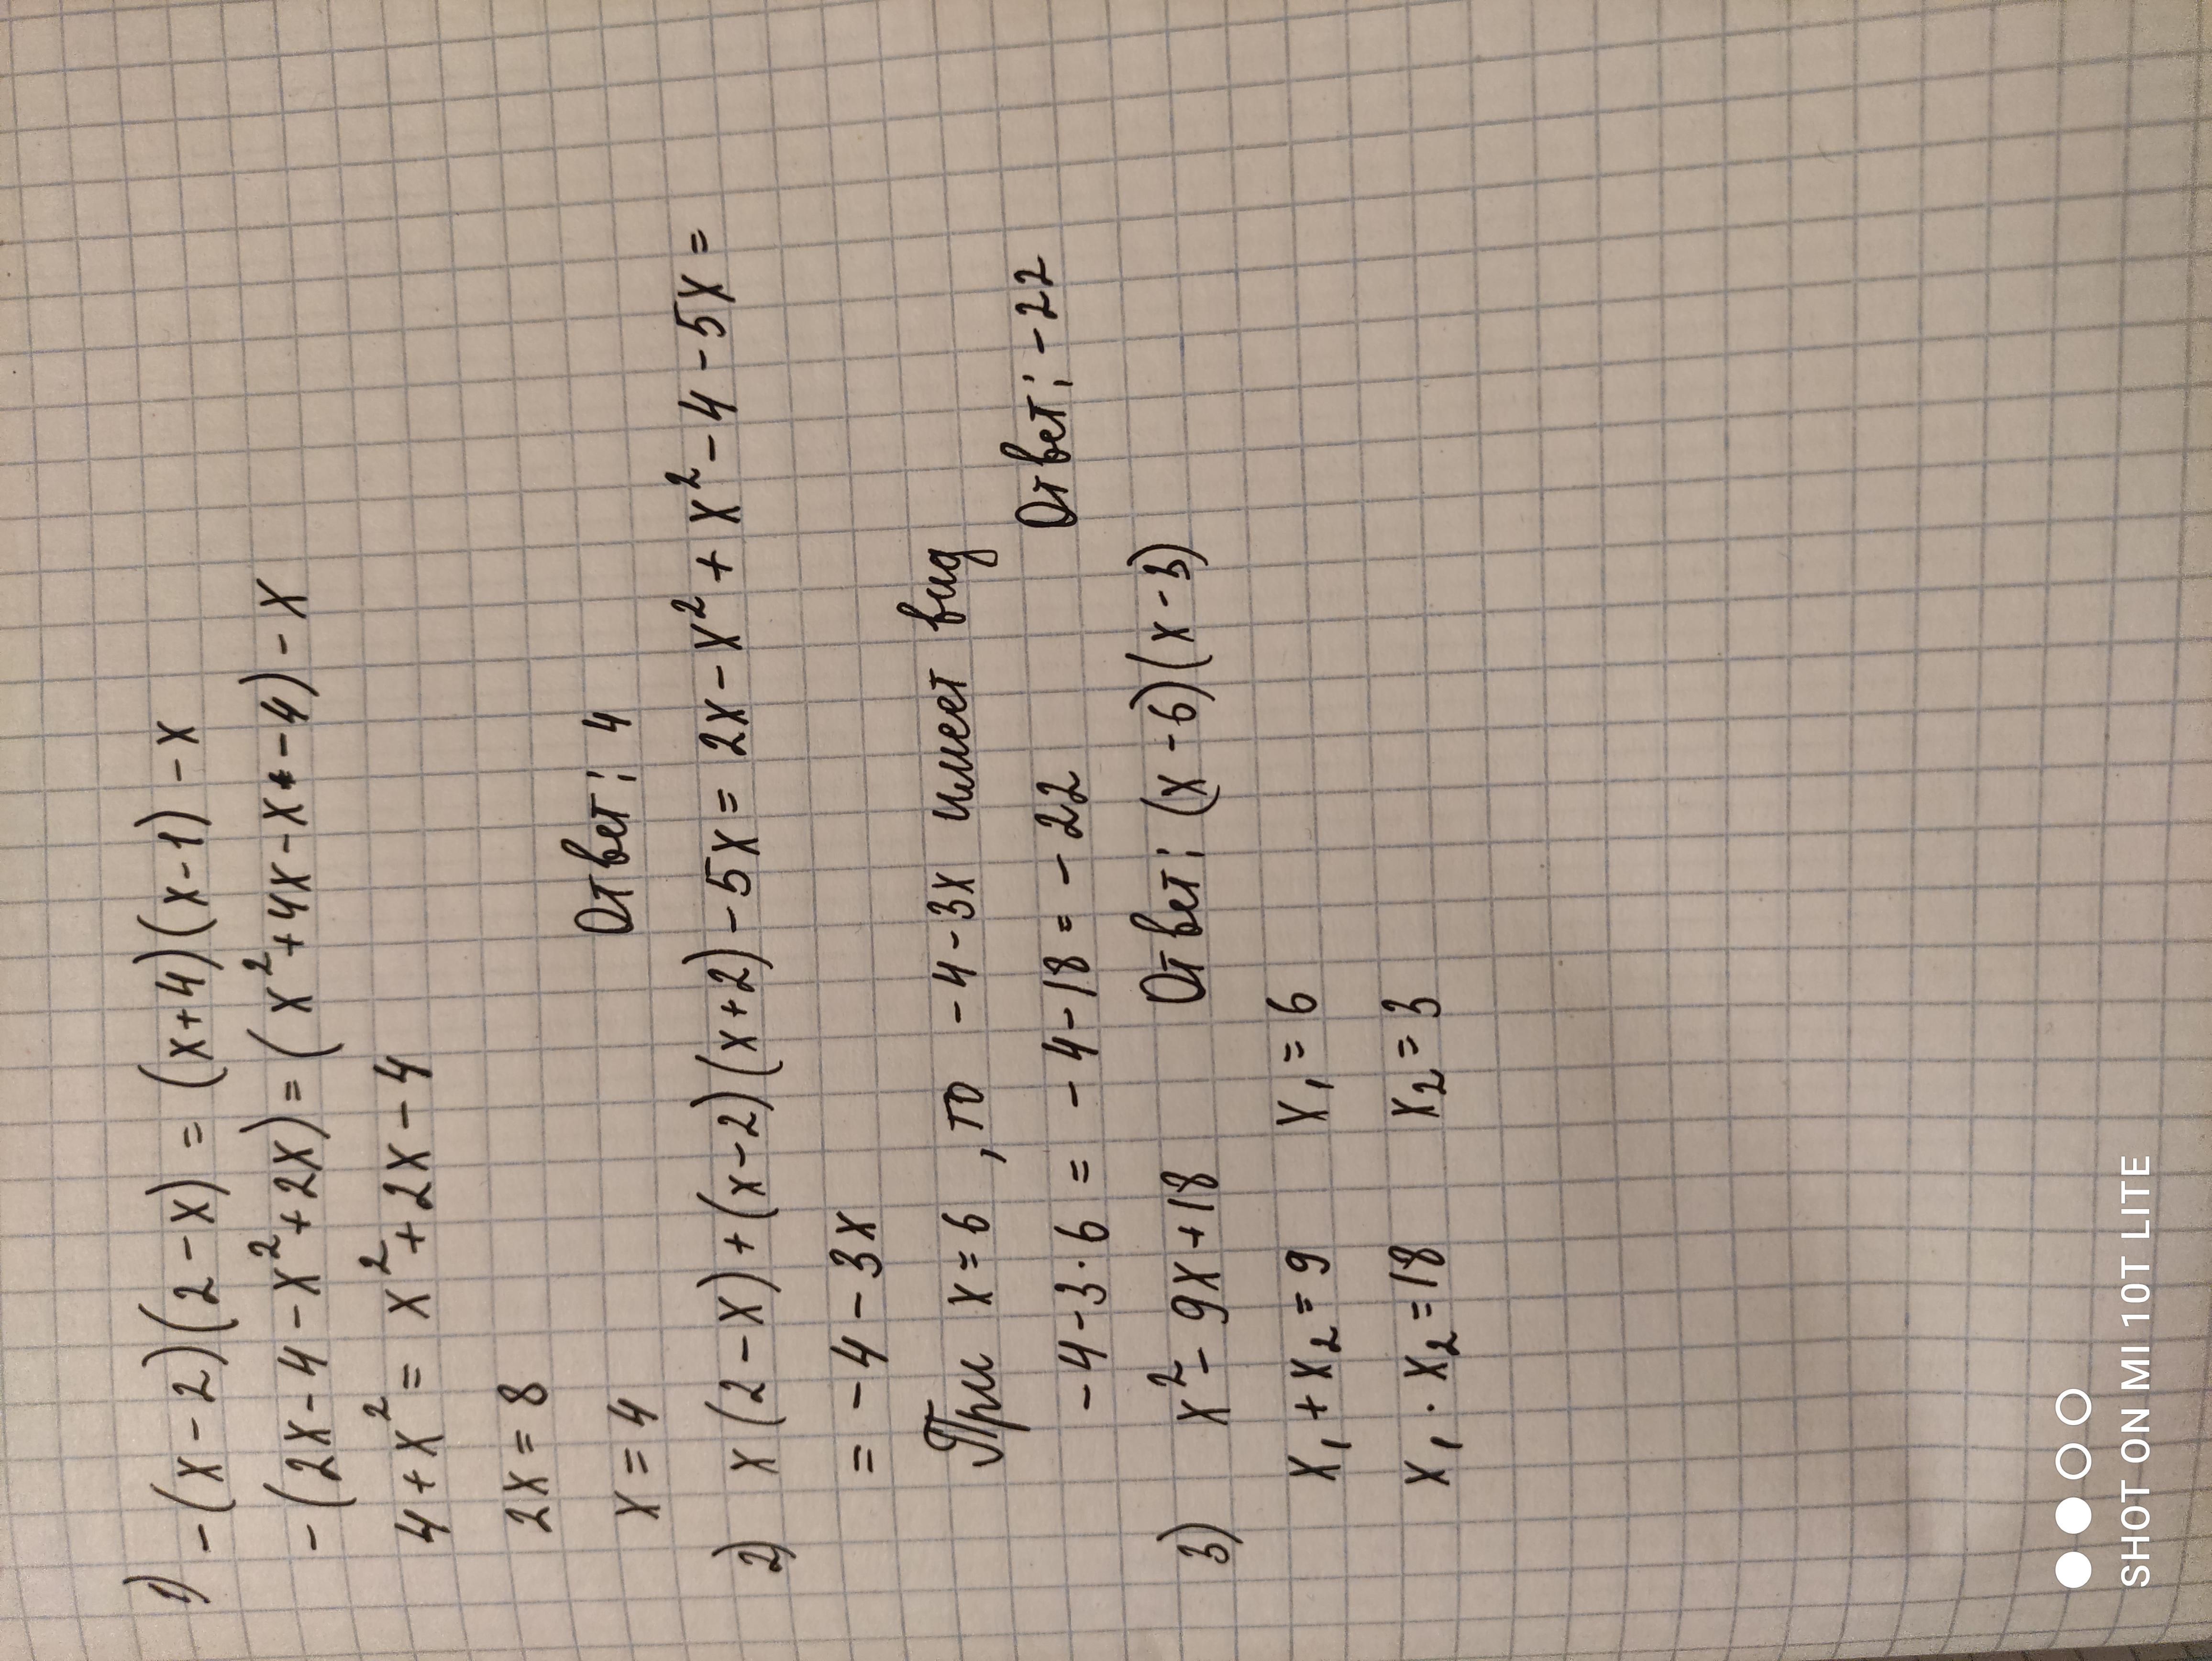 1) -(x-2)(2-x) = (x+4)(x-1) - x
-(2x-4-x²+2x) = (x²+4x-x-4) - x
4+x² = x²+2x-4
2x = 8
x = 4 Ответ: 4
2) x(2-x)+(x-2)(x+2)-5x = 2x-x²+x²-4-5x =
= -4-3x
При x=6, то -4-3x имеет вид
-4-3·6 = -4-18 = -22 Ответ: -22
3) x²-9x+18 Ответ: (x-6)(x-3)
x₁+x₂=9 x₁=6
x₁·x₂=18 x₂=3
SHOT ON MI 10T LITE